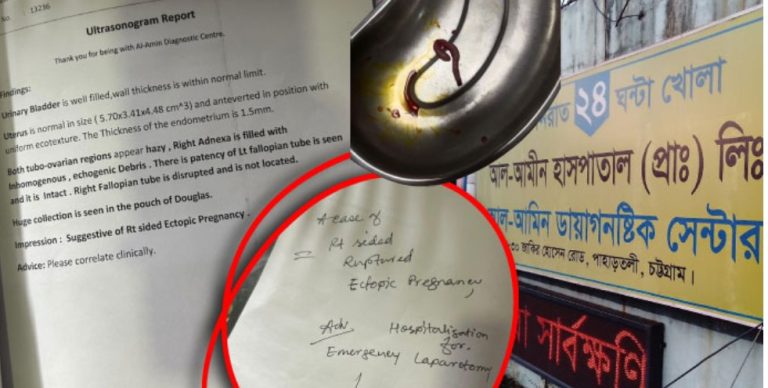 No. : 13236
Ultrasonogram Report
Thank you for being with Al-Amin Diagnostic Centre.
Findings:
Urinary Bladder is well filled,wall thickness is within normal limit.
Uterus is normal in size ( 5.70x3.41x4.48 cm^3) and anteverted in position with
uniform ecotexture. The Thickness of the endometrium is 1.5mm.
Both tubo-ovarian regions appear hazy , Right Adnexa is filled with
Inhomogenous , echogenic Debris . There is patency of Lt fallopian tube is seen
and it is Intact . Right Fallopian tube is disrupted and is not located.
Huge collection is seen in the pouch of Douglas.
Impression : Suggestive of Rt sided Ectopic Pregnancy .
Advice: Please correlate clinically.
A case of
Rt sided
Ruptured
Ectopic Pregnancy,
Adv Hospitalisation
for.
Emergency Laparotomy
২৪ ঘন্টা খোলা
আল-আমীন হাসপাতাল (প্রাঃ) লিঃ
আল-আমিন ডায়াগনষ্টিক সেন্টার
জাকির হোসেন রোড, পাহাড়তলী, চট্টগ্রাম।
সার্বক্ষণি